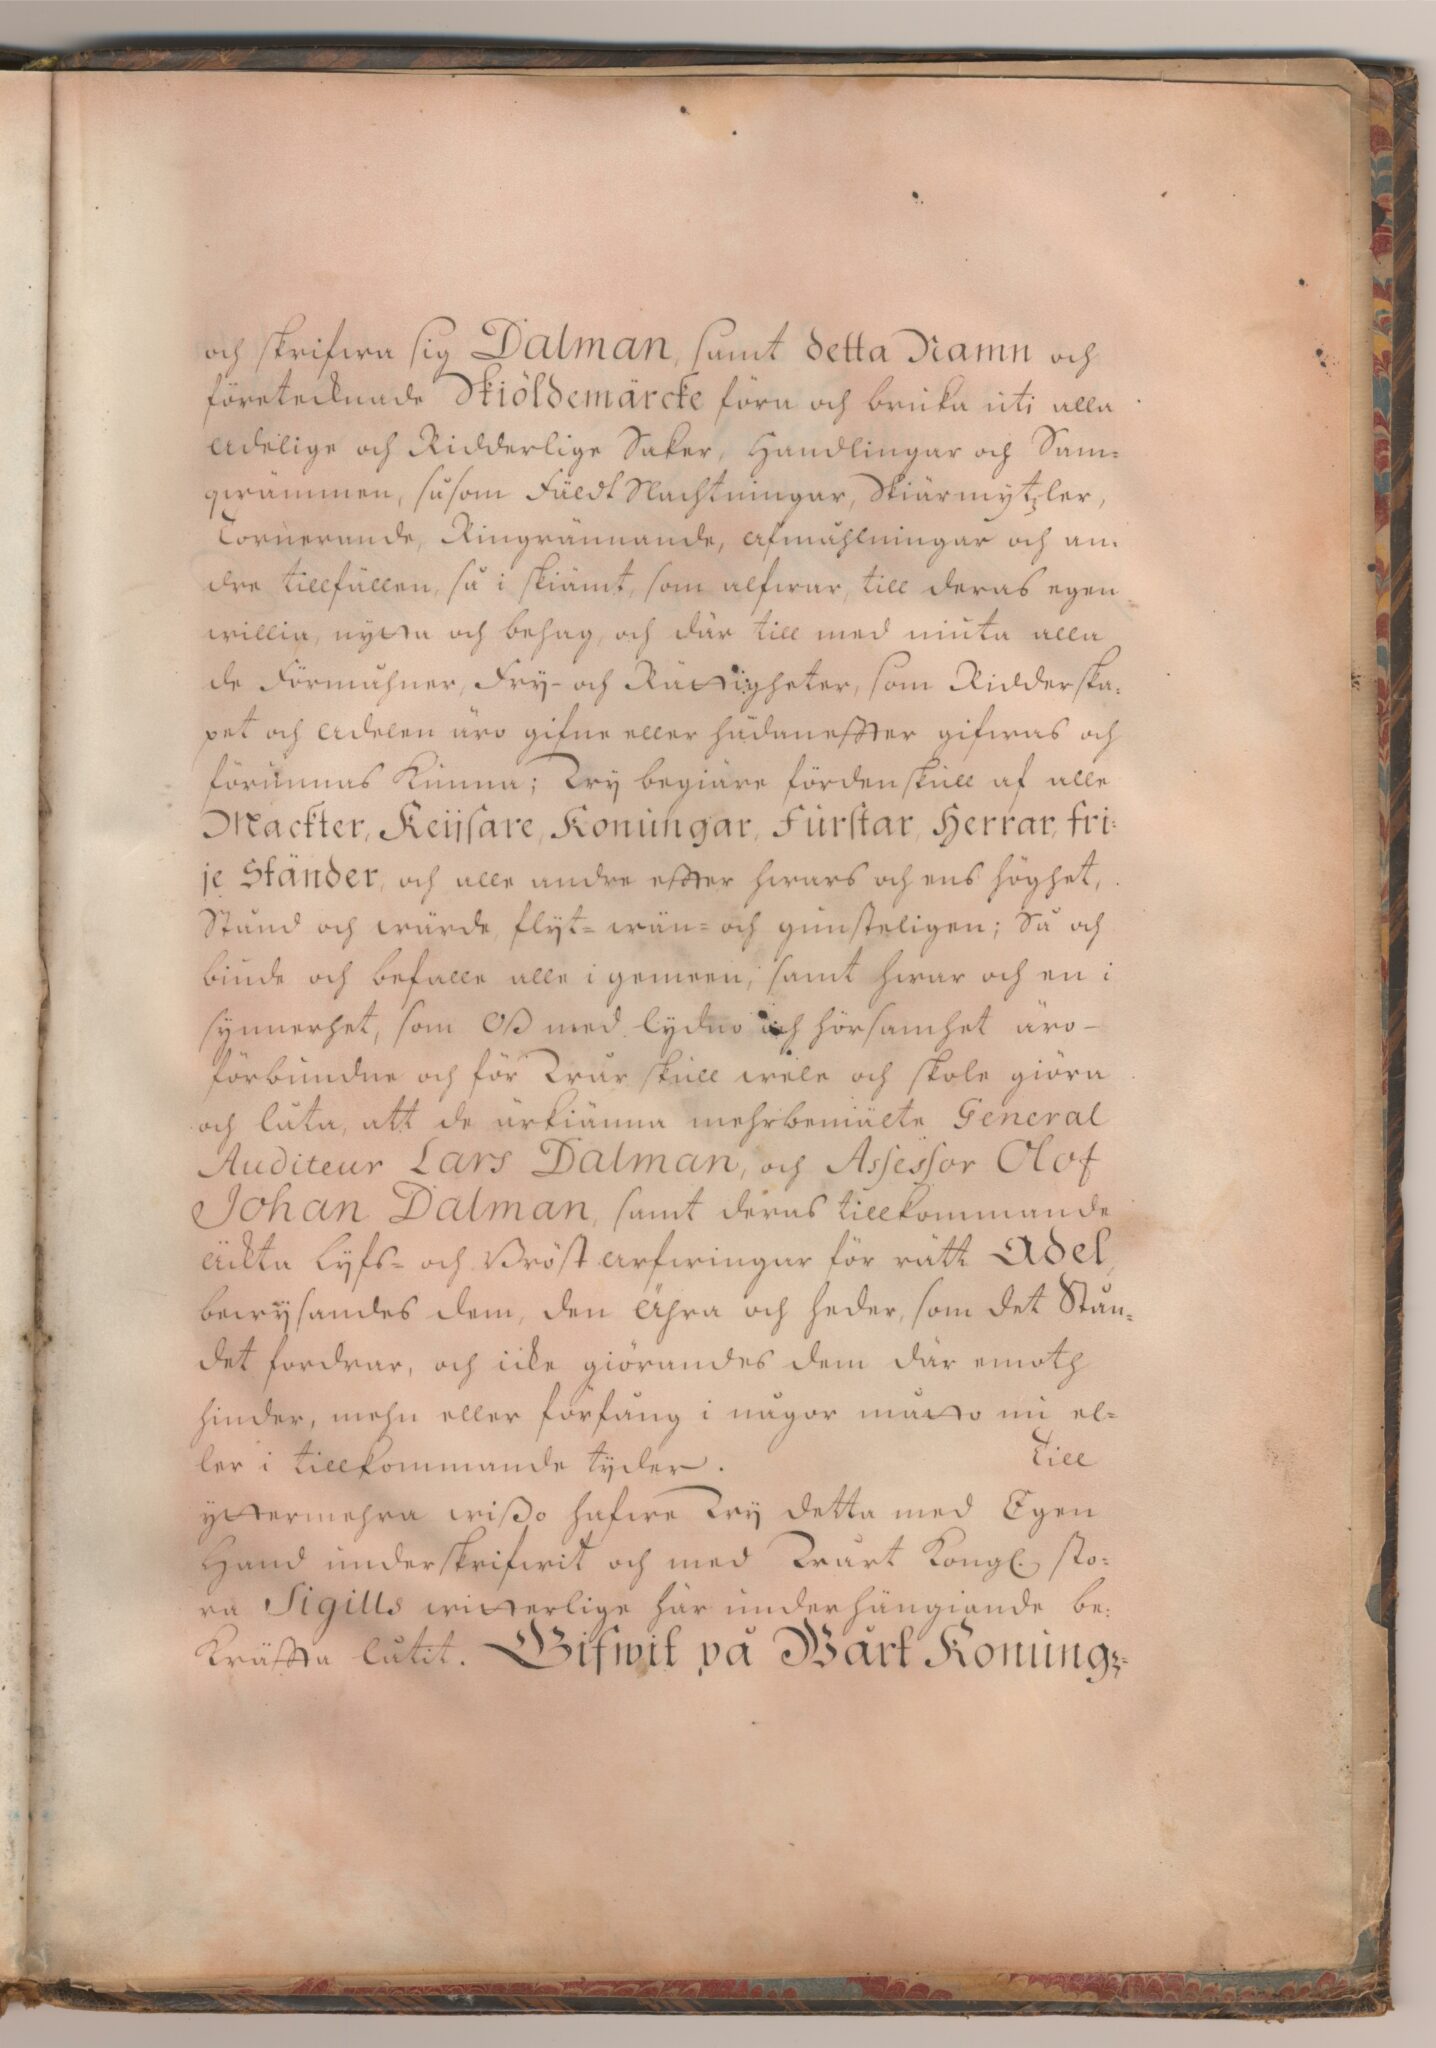 och skrifwa sig Dalman, samt detta Namn och
företecknade Skiöldemärcke föra och bruka uti alla
Adelige och Ridderlige Saker, Handlingar och Sam-
qwämmen, såsom Fäldt Slachtningar, Skiärmytzler,
Tornerande, Ringrännande, Afmåhlningar och an-
dre tillfällen, så i skiämt, som alfwar, till deras egen
willia, nytta och behag, och där till med niuta alla
de Förmåhner, Fry- och Rättigheter, som Ridderska-
pet och Adelen äro gifne eller hädaneffter gifwas och
förunnas kunna; Wy begiäre fördenskull af alle
Mackter, Keijsare, Konungar, Fürstar, Herrar, fri-
je Ständer, och alle andre effter hwars och ens höghet,
Stånd och wärde, flyt- wän- och gunsteligen; Så och
biude och befalle alle i gemeen, samt hwar och en i
synnerhet, som Oß med lydno och hörsamhet äro
förbundne och för Wår skull wele och skole giöra
och låta, att de ärkiänna mehrbemälte General
Auditeur Lars Dalman, och Assessor Olof
Johan Dalman, samt deras tillkommande
Ächta Lyfs- och Bröst Arfwingar för rätt Adel,
bewysandes dem, den Ähra och heder, som det Stån-
det fordrar, och icke giörandes dem där emoth
hinder, mehn eller förfång i någor måtto nu el-
ler i tillkommande tyder. Till
yttermehra wißo hafwe Wy detta med Egen
Hand underskrifwit och med Wårt Kongl. sto-
ra Sigills witterlige här underhängiande be-
kräffta låtit. Gifwit på Wårt Konungz-